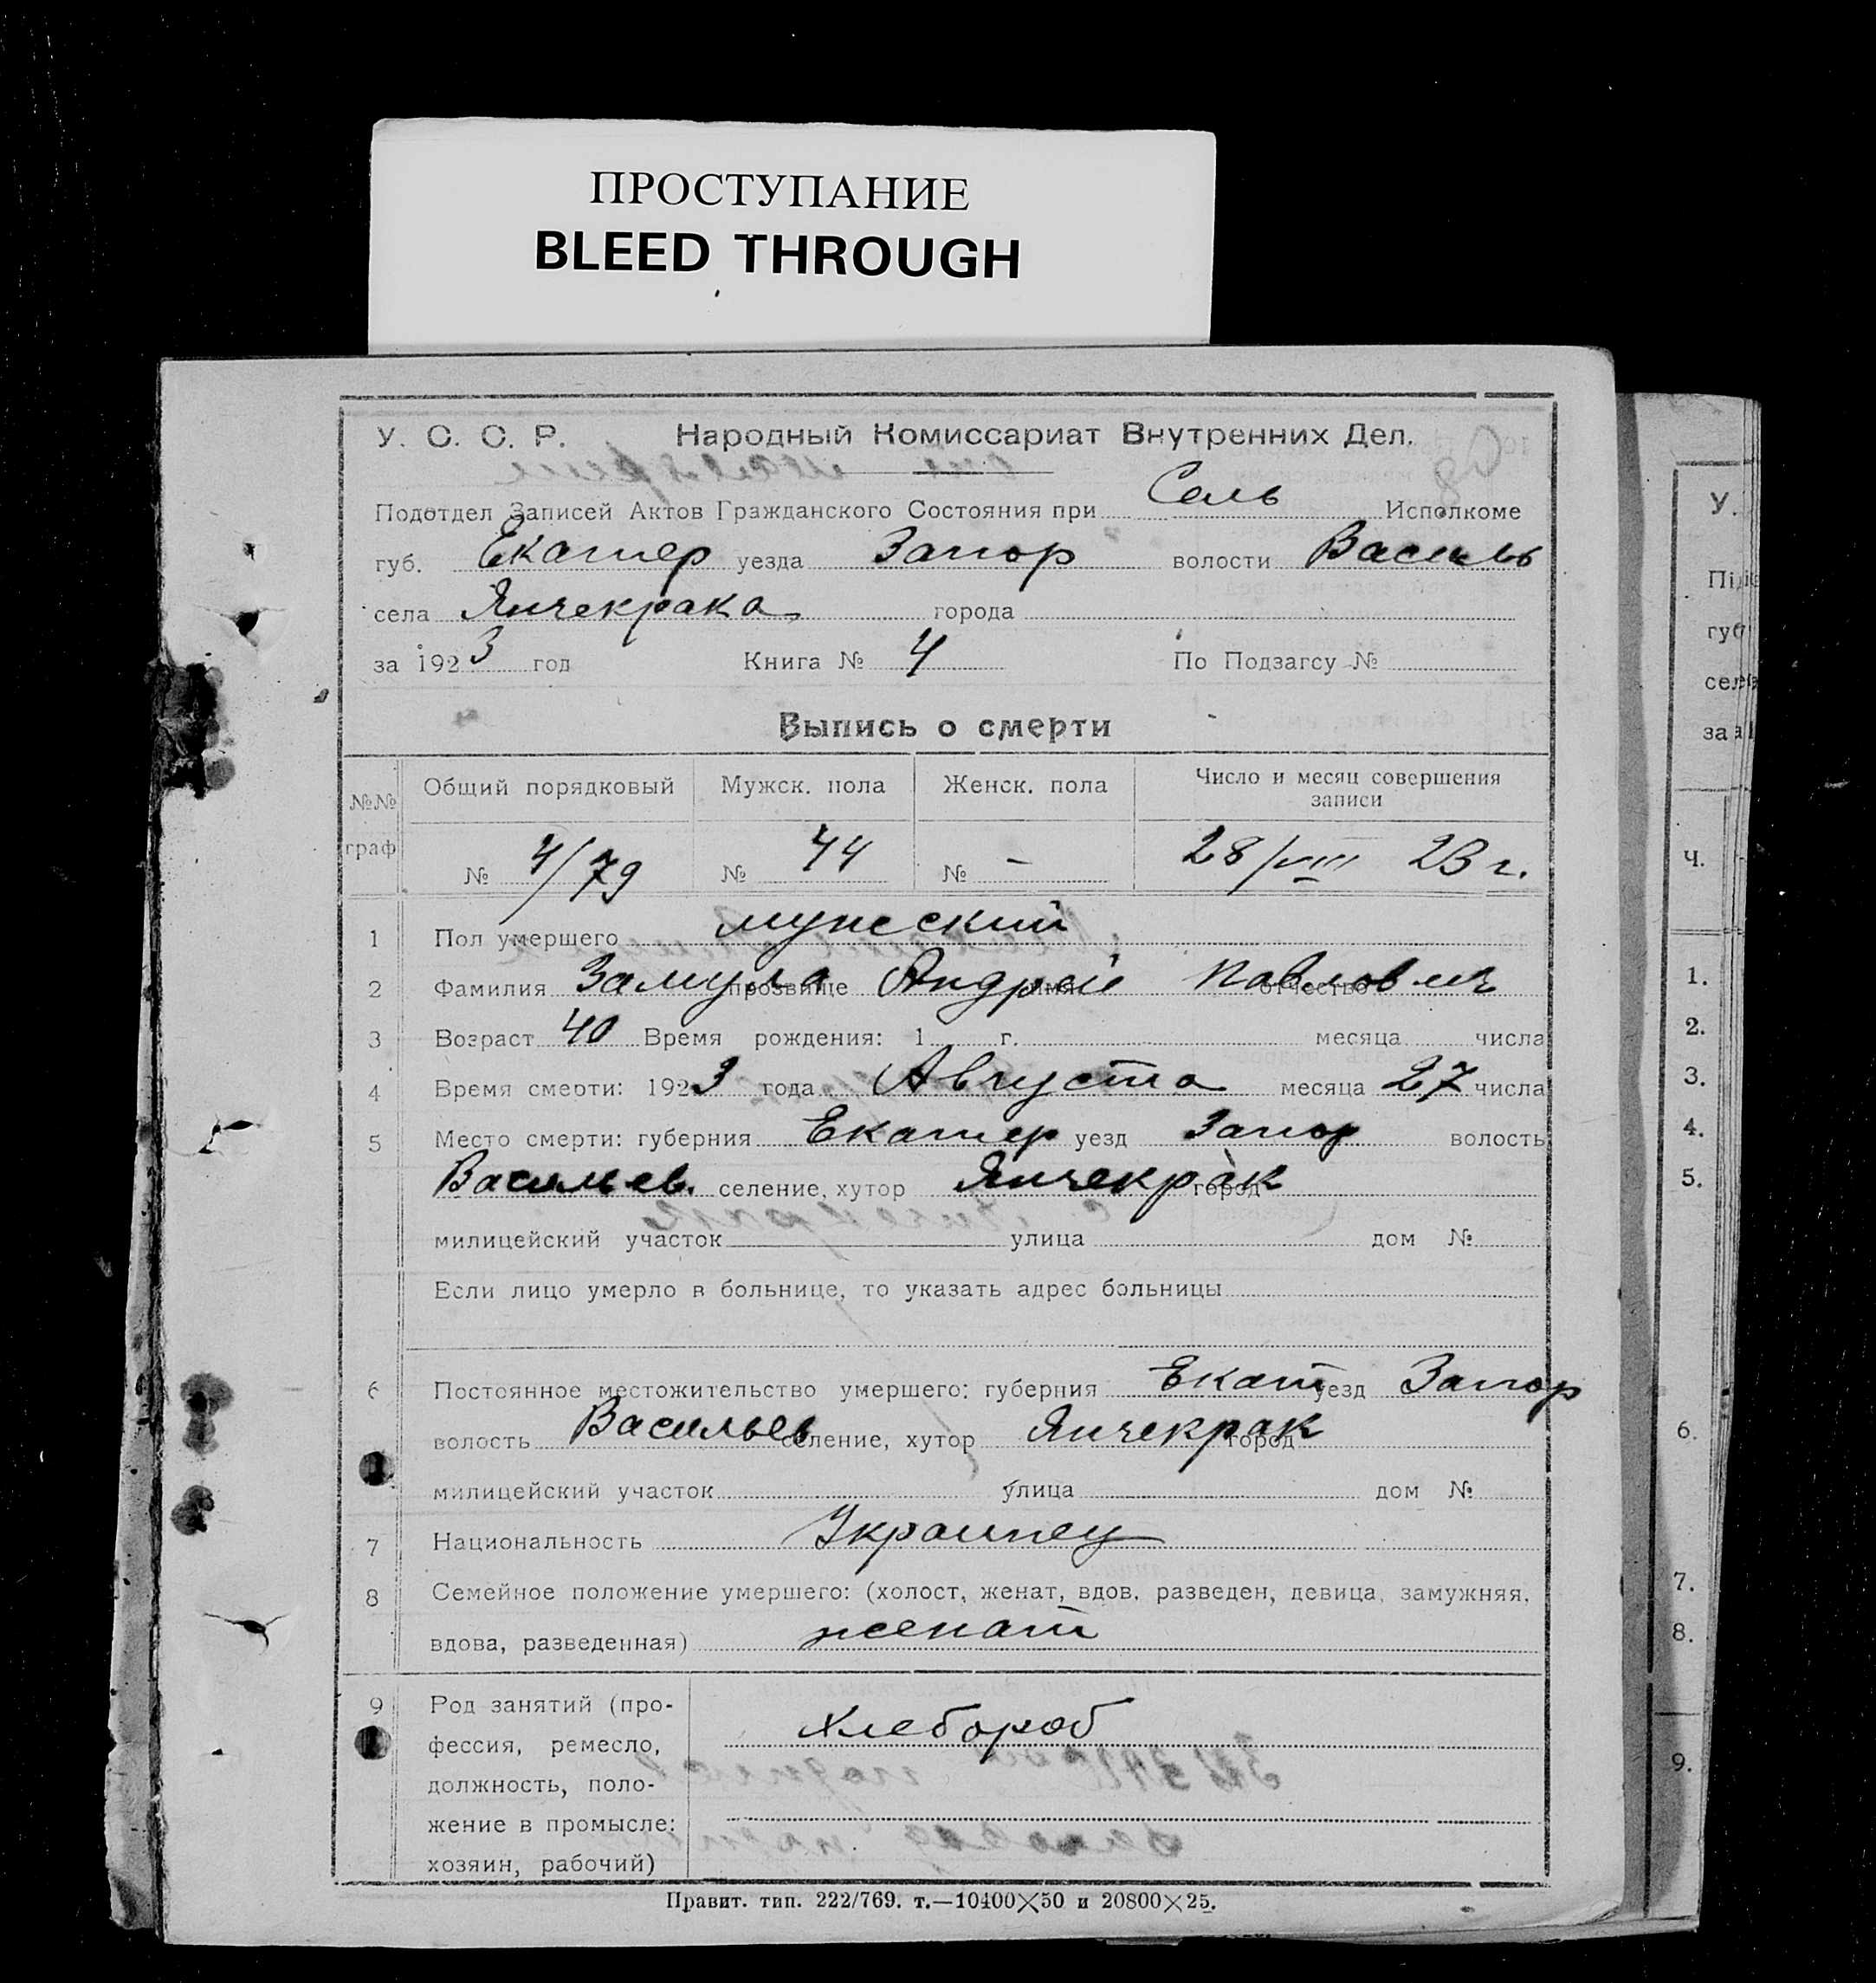 ПРОСТУПАНИЕ
BLEED THROUGH
У. С. С. Р. Народный Комиссариат Внутренних Дел.
Подотдел Записей Актов Гражданского Состояния при Сель Исполкоме
губ. Екатер уезда Запор волости Василь
села Янчекрака города
за 1923 год Книга № 4 По Подзагсу №
Выпись о смерти
№№ граф Общий порядковый Мужск. пола Женск. пола Число и месяц совершения записи
№ 4/79 № 44 № – 28/VIII 23 г.
1 Пол умершего мужский
2 Фамилия Замула прозвище Андрей имя Павлович отчество
3 Возраст 40 Время рождения: 1 г. месяца числа
4 Время смерти: 1923 года Августа месяца 27 числа
5 Место смерти: губерния Екатер уезд Запор волость
Васильев. селение, хутор Янчекрак город
милицейский участок улица дом №
Если лицо умерло в больнице, то указать адрес больницы
6 Постоянное местожительство умершего: губерния Екат уезд Запор
волость Васильев селение, хутор Янчекрак город
милицейский участок улица дом №
7 Национальность Украинец
8 Семейное положение умершего: (холост, женат, вдов, разведен, девица, замужняя,
вдова, разведенная) женат
9 Род занятий (про-
фессия, ремесло, хлебороб
должность, поло-
жение в промысле:
хозяин, рабочий)
Правит. тип. 222/769. т.—10400×50 и 20800×25.
У.
губ
за
Ч.
1.
2.
3.
4.
5.
6.
7.
8.
9.